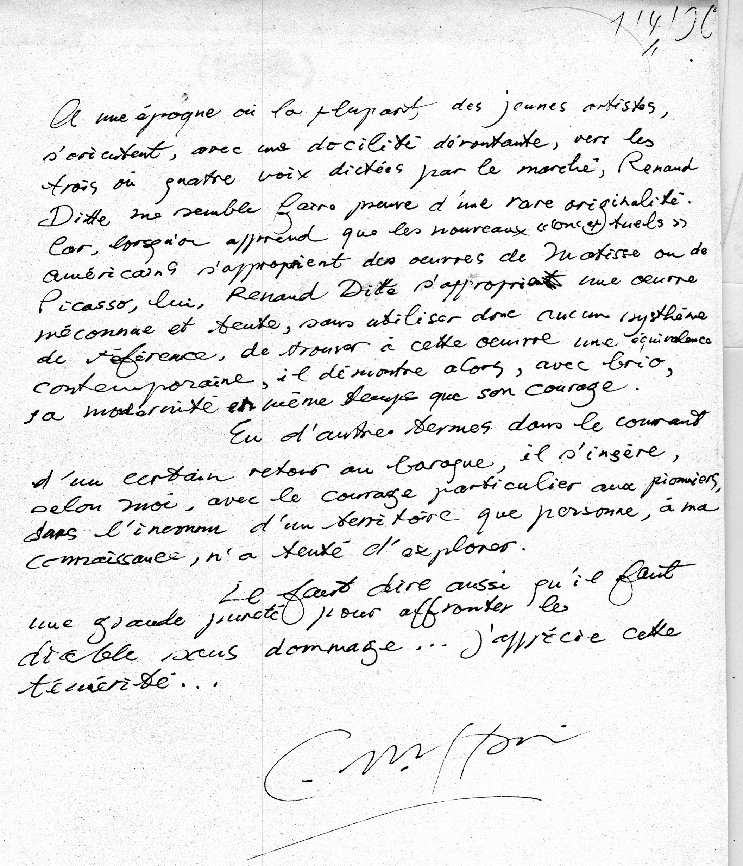 1/4/96
A une époque où la plupart des jeunes artistes,
s'orientent, avec une docilité déroutante, vers les
trois ou quatre voix dictées par le marché, Renaud
Ditte me semble faire preuve d'une rare originalité.
Car, lorsqu'on apprend que les nouveaux «conceptuels»
américains s'approprient des oeuvres de Matisse ou de
Picasso, lui, Renaud Ditte s'appropriait une oeuvre
méconnue et tente, sans utiliser donc aucun systhème
de référence, de trouver à cette oeuvre une équivalence
contemporaine, il démontre alors, avec brio,
sa modernité en même temps que son courage.
En d'autres termes dans le courant
d'un certain retour au baroque, il s'insère,
selon moi, avec le courage particulier aux pionniers,
dans l'inconnu d'un territoire que personne, à ma
connaissance, n'a tenté d'explorer.
Il faut dire aussi qu'il faut
une grande pureté pour affronter le
diable sans dommage... j'apprécie cette
témérité...